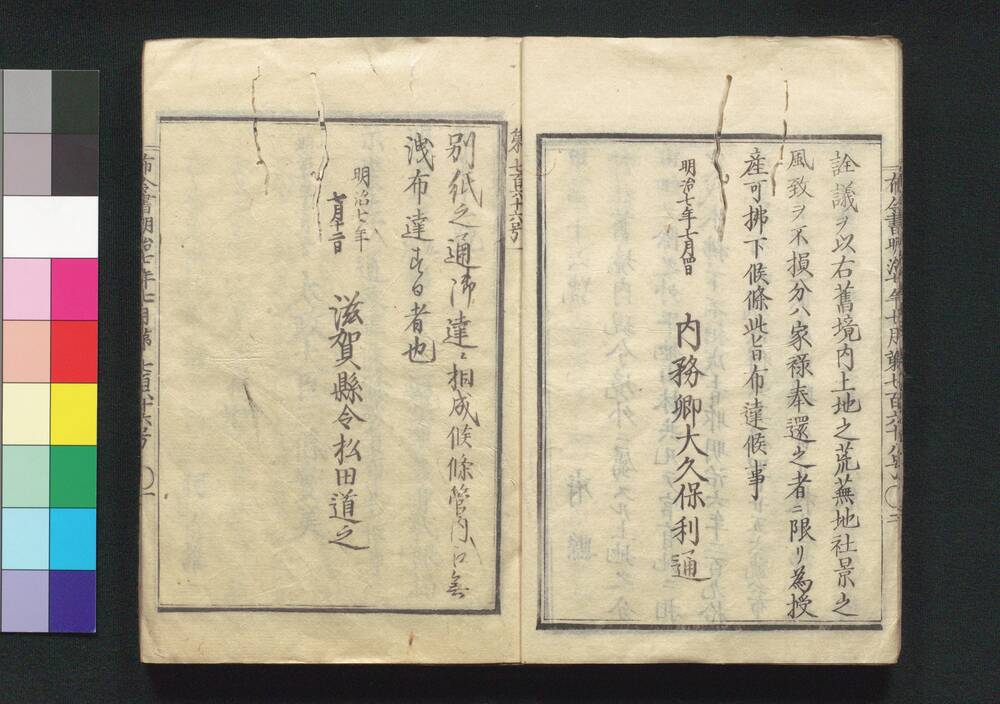 詮議ヲ以右舊境内上地之荒蕪地社景之
風致ヲ不損分ハ家禄奉還之者ニ限リ為授
産可拂下候條此旨布達候事
明治七年七月四日
内務卿大久保利通
第七百六十六号
別紙之通御達ニ相成候條管内江無
洩布達する者也
明治七年
七月十二日
滋賀縣令松田道之